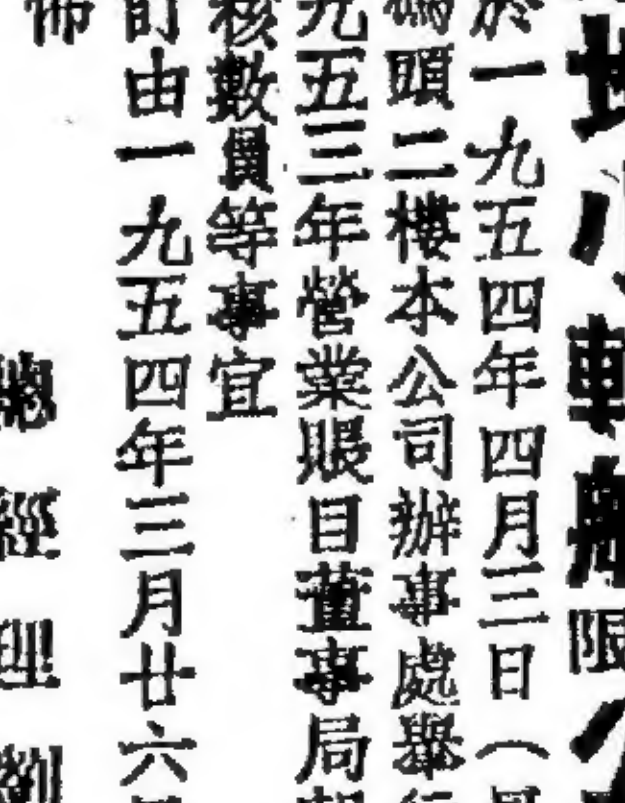 地小輪船限公
於一九五四年四月三日（星
碼頭二樓本公司辦事處舉行
九五三年營業賬目董事局報
核數員等事宜
前由一九五四年三月廿六
佈
總經理劉